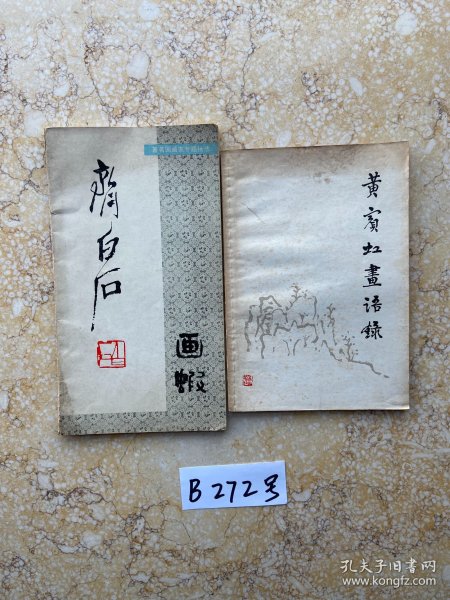 齐白石
画虾
黄宾虹畫语錄
B272号
孔夫子旧书网
www.kongfz.com